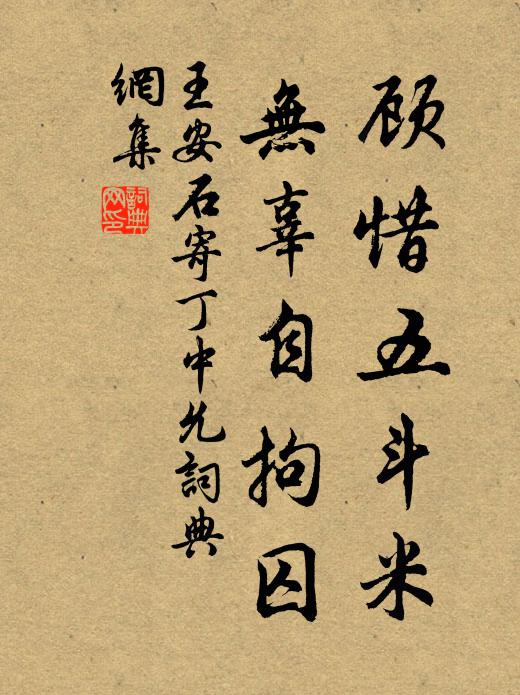 顾惜五斗米
無辜自拘囚
王安石寄丁中允詞典
網集
詞典
网印